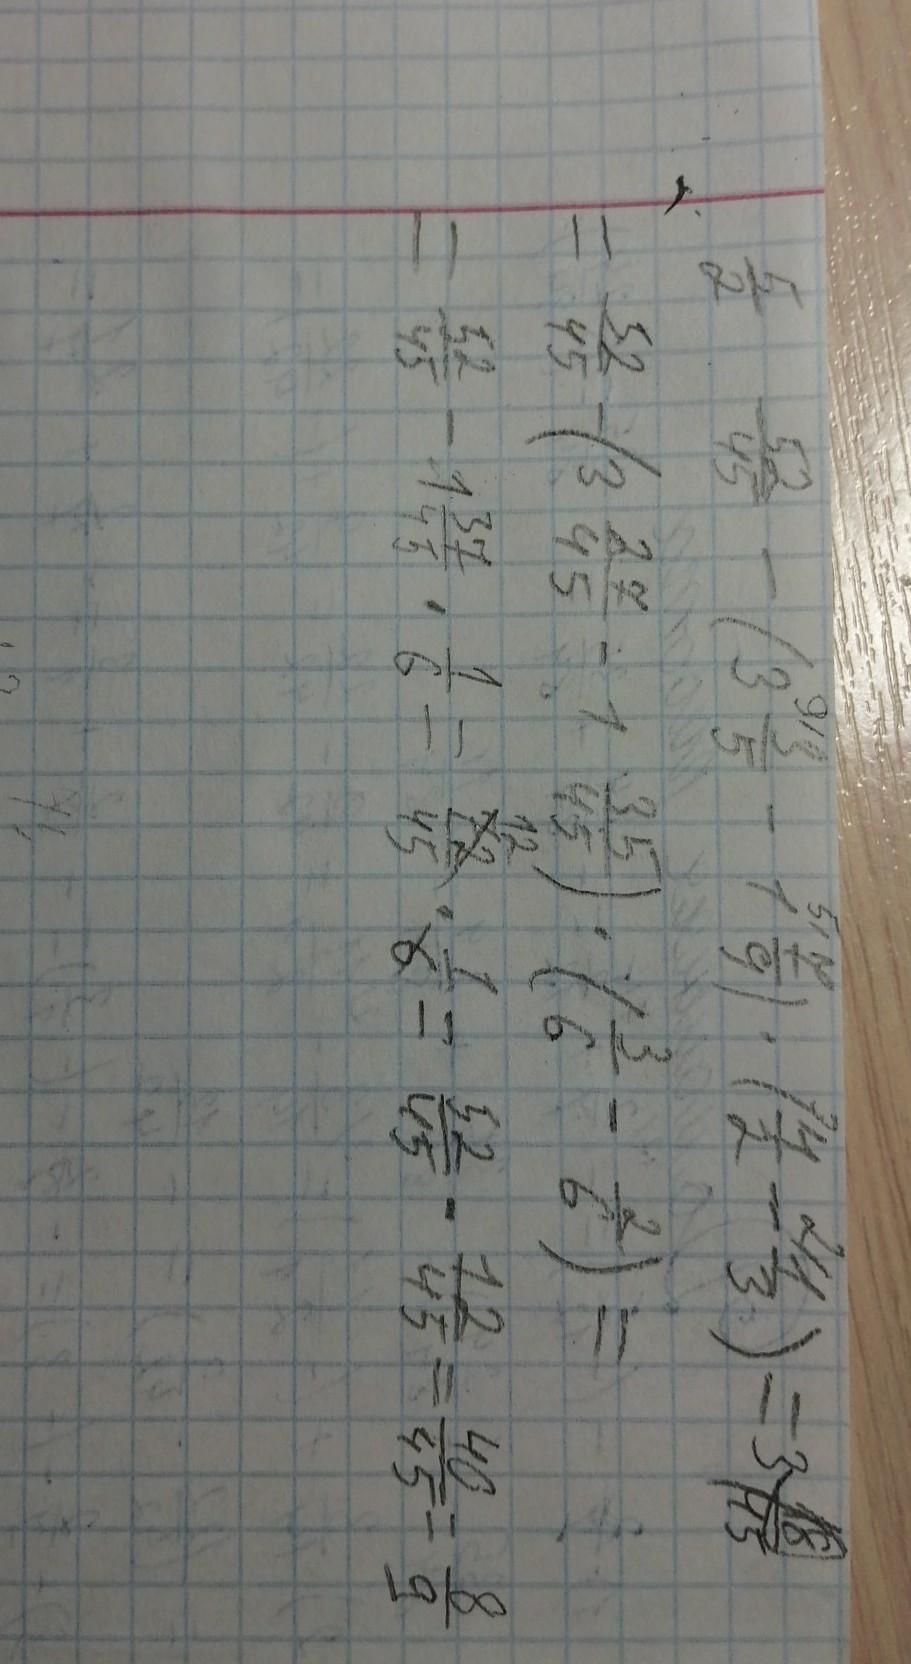 5/2 52/45 - (3 3/5 - 1 7/9) · (1/2 - 1/3) =
= 52/45 - (3 27/45 - 1 35/45) · (3/6 - 2/6) =
= 52/45 - 1 37/45 · 1/6 = 72/45 · 1/6 = 52/45 - 12/45 = 40/45 = 8/9